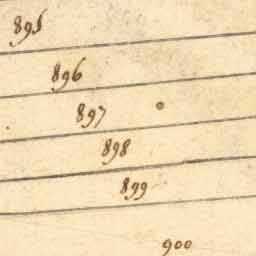 895
896
897
898
899
900